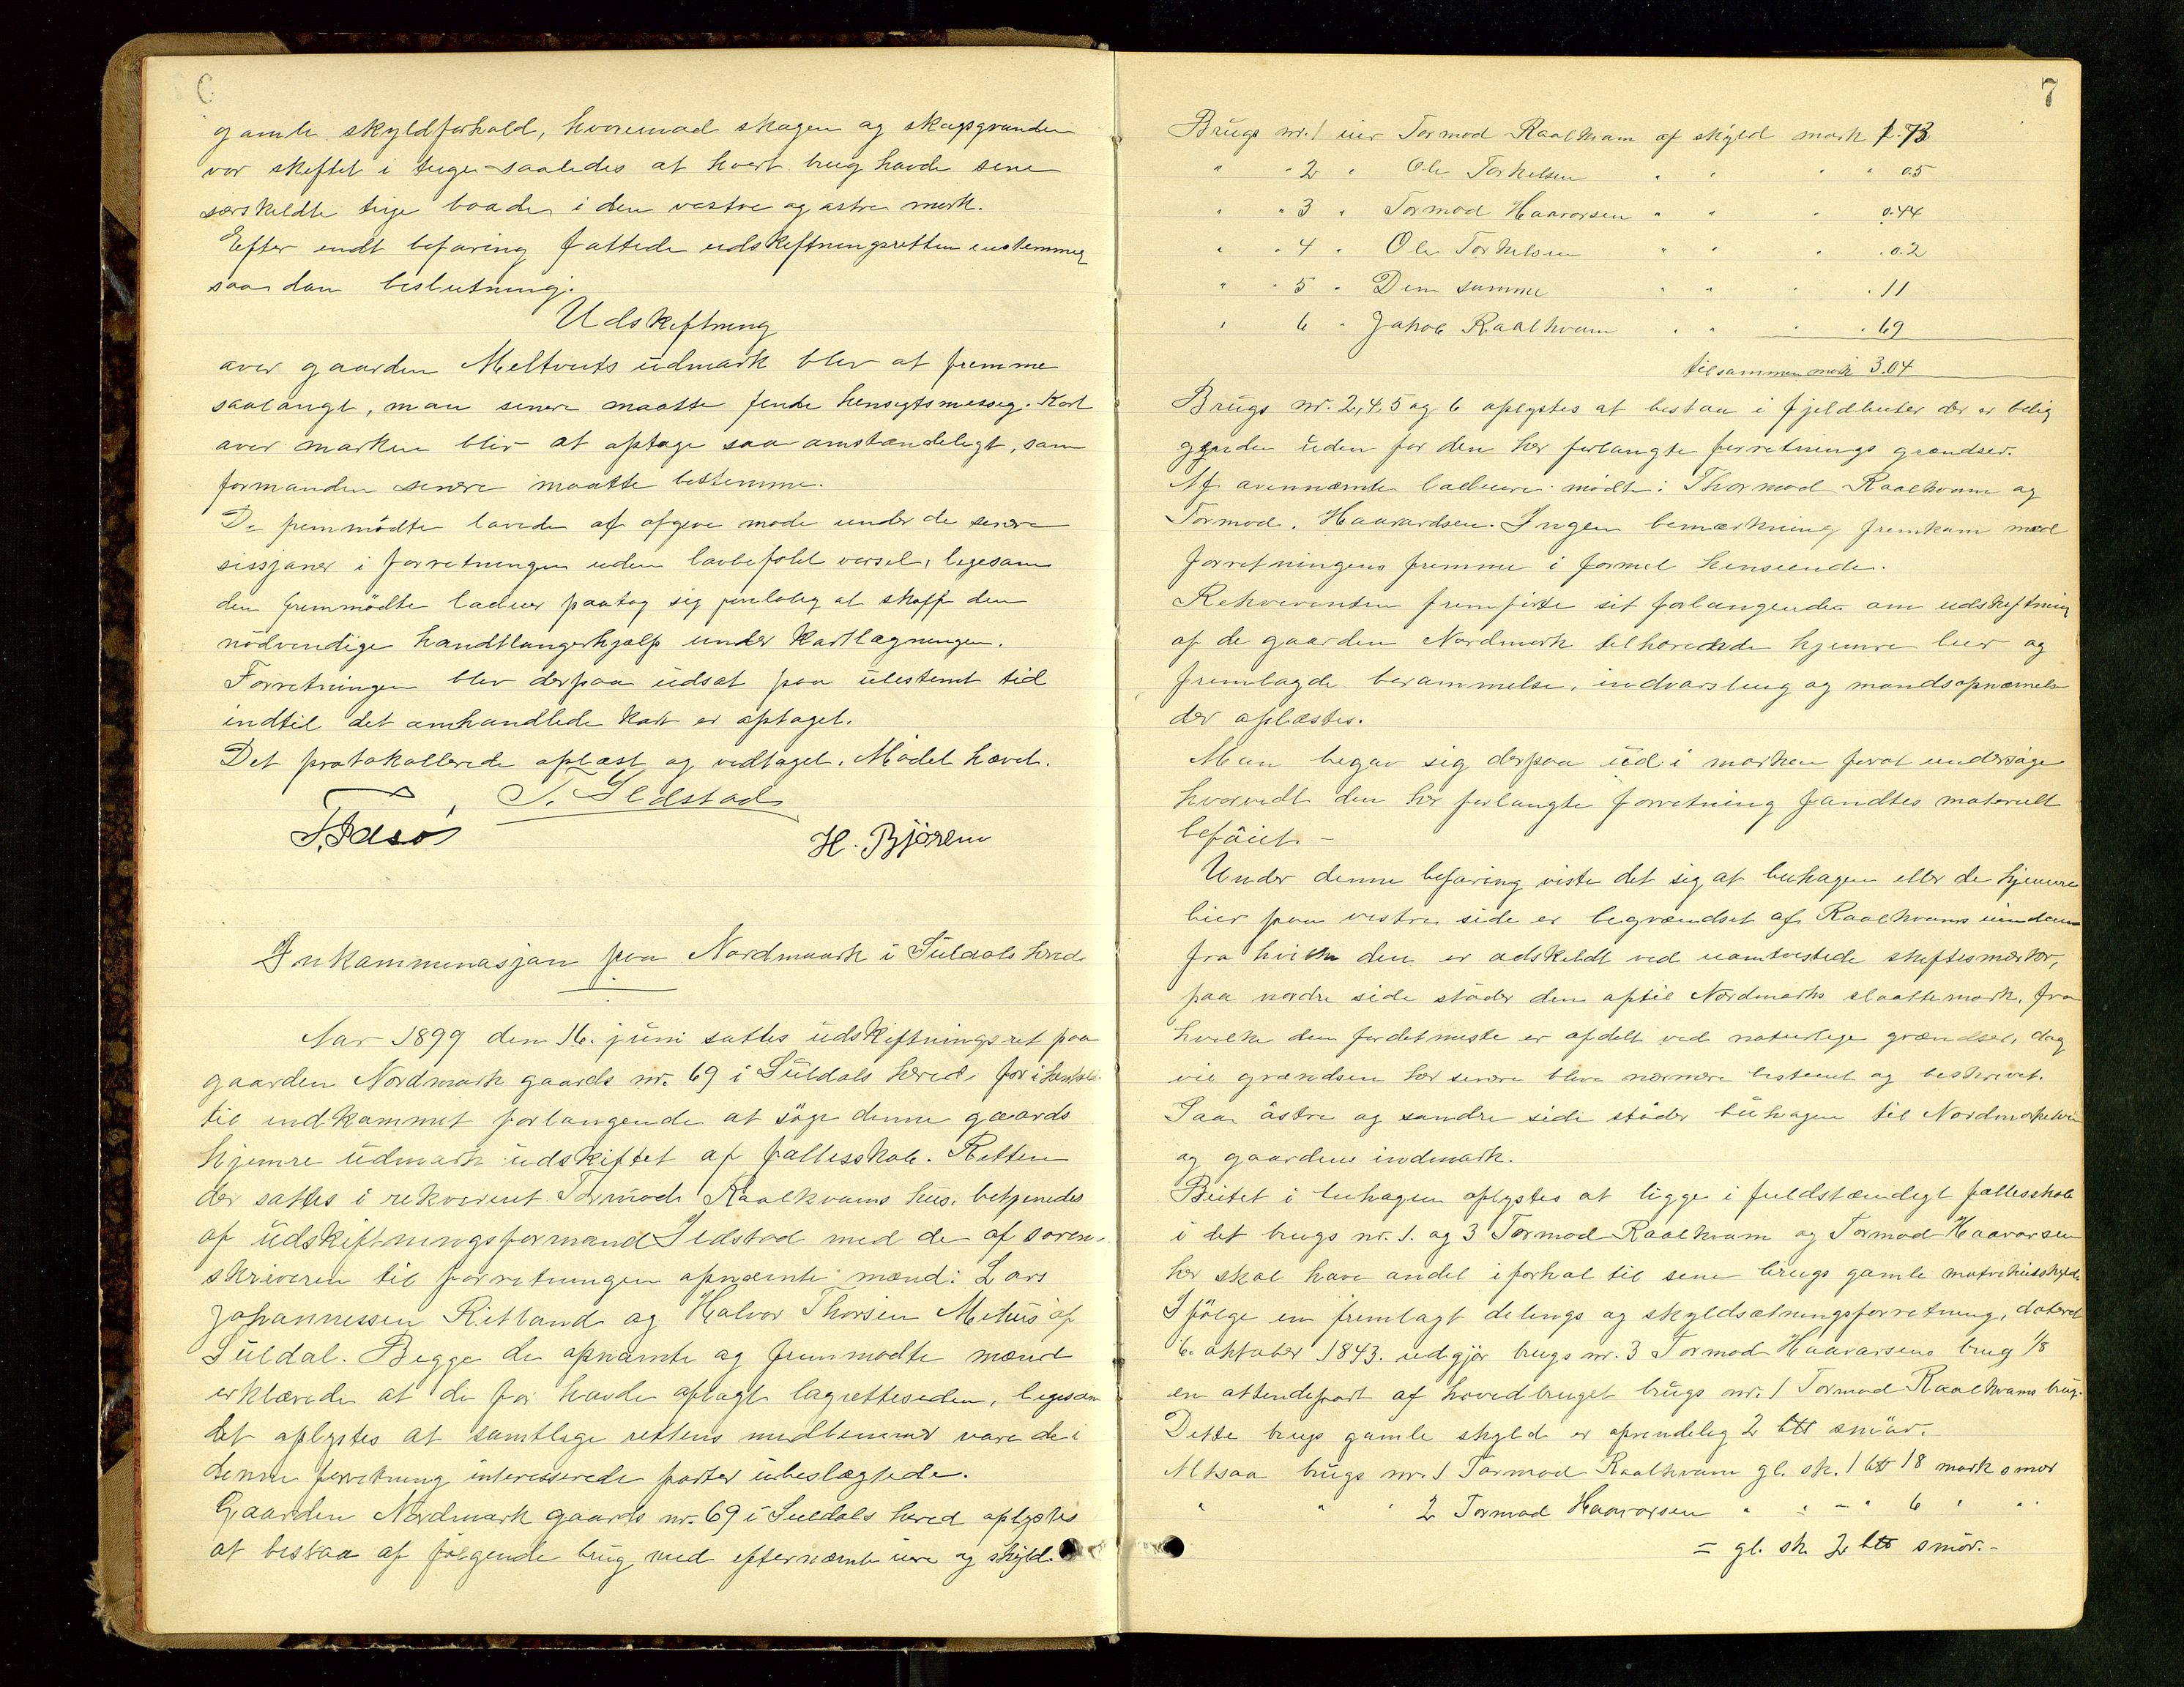 6
gamle skyldforhold, hvoremod skogen og skogsgrunden
var skeftet i teiger saaledes at hvert brug havde sine
særskeldte teige baade i den vestre og østre mark.
Efter endt befaring fattede udskeftningsretten enstemmig
saadan beslutning.
Udskeftning
over gaarden Meltveits udmark blev at fremme
saalangt, man senere maatte finde hensigtsmessig. Kart
over marken bliv at optage saa omstændeligt, som
formanden senere maatte bestemme.
De fremmødte lovede at afgive møde under de senere
sissjoner i forretningen uden lovbefalet varsel, ligesom
den fremmødte ladeier paatog sig foreløbig at skaffe den
nødvendige haandtlangerhjælp under kartlægningen.
Forretningen blev derpaa udsat paa ubestemt tid
indtil det omhandlede kart er optaget.
Det protokollerede oplæst og vedtaget. Mødet hævet.
S. Ildstad
T. Fasø H. Bjøren
Inkamminasjon paa Nordmark i Suldals herred
Aar 1899 den 16. juni sattes udskiftningsret paa
gaarden Nordmark gaards nr. 69 i Suldals hered for i henhold
til indkommet forlangende at søge denne gaards
hjemre udmark udskiftet af fællesskab. Retten
der sattes i rekvirent Tormods Raalkvams hus, betjenedes
af udskiftningsformand Ildstad med de af soren-
skriveren til forretningen opnæmte mænd: Lars
Johannessen Ritland og Halvor Thorsen Mehus af
Suldal. Begge de opnæmte og fremmødte mænd
erklærede at de før havde aflagt lagretteseden, ligesom
det oplystes at samtlige rettens medlemmer vare de i
denne forretning interesserede parter ubeslægtede.
Gaarden Nordmark gaards nr. 69 i Suldals hered oplystes
at bestaa af følgende brug med efternæmte eiere og skyld.
7
Brugs nr. 1 eier Tormod Raalkvam af skyld mark 1.73
" " 2 " Ole Torkelsen " " " " 0.5
" " 3 " Tormod Haavarsen " " " 0.44
" " 4 " Ole Torkelsen " " " . 0.2
" " 5 " Den samme " " " . 11
" 6 " Jakob Raalkvam " " " . 69
tilsammen mark 3.04
Brugs nr. 2, 4, 5 og 6 oplystes at bestaa i fjeldbeiter der er belig
gende uden for den her forlangte forretnings grændser.
Af ovennæmte ladeiere mødte: Thormod Raalkvam og
Tormod. Haavardsen. Ingen bemærkning fremkom mod
forretningens fremme i formel henseende.
Rekvirenten fremførte sit forlangende om udskeftning
af de gaarden Nordmark tilhørende hjemre lier og
fremlagde berammelse, indvarsling og mandsopnæmelse
der oplæstes.
Man begav sig derpaa ud i marken forat undersøge
hvorvidt den her forlangte forretning fandtes materielt
beføiet. -
Under denne befaring viste det sig at buhagen eller de hjemre
lier paa vestre side er begrændset af Raalkvams eiendom
fra hvilken den er adskeldt ved uomtvestede skeftesmærker,
paa nordre side støder den optil Nordmarks slaattemark, fra
hvilke den fordetmeste er afdelt ved naturlige grændser, dog
vil grændsen her senere blive nærmere bestemt og beskrevet.
Paa østre og søndre side støder buhagen til Nordmarkelven
og gaardens indmark.
Beitet i buhagen oplystes at ligge i fuldstændigt fællesskab
i det brugs nr. 1. og 3 Tormod Raalkvam og Tormod Haavarsen
her skal have andel i forhol til sine brugs gamle matrikulsskyld.
Ifølge en fremlagt delings og skyldsætningsforretning, dateret
6. oktober 1843. udgjør brugs nr. 3 Tormod Haavarsens brug 1/8
en attendepart af hovedbruget brugs nr. 1 Tormod Raalkvams brug.
Dette brugs gamle skyld er oprendelig 2 løb smør.
Altsaa brugs nr. 1 Tormod Raalkvam gl. sk. 1 løb 18 mark smør
" " " 2 Tormod Haavarsen " " - " 6 " " "
= gl. sk. 2 løb smør. -